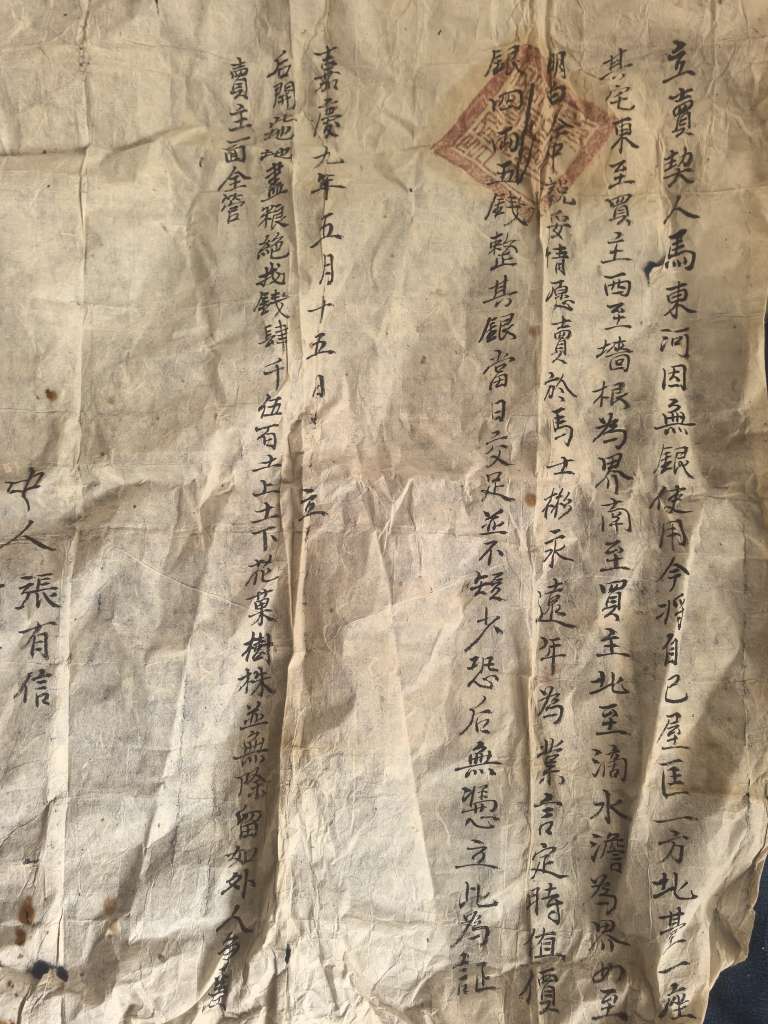 立賣契人馬東河因無銀使用今将自己屋匡一方北基一座
其宅東至買主西至墻根為界南至買主北至滴水澹為界四至
明白仝中說妥情愿賣於馬士彬永遠年為業言定時值價
銀四兩五錢整其銀當日交足並不短少恐后無憑立此為証
嘉慶九年五月十五日 立
后開蒞地盡粮絕找錢肆千伍百土上土下花菓樹株並無除留如外人争
賣主一面全管
中人張有信